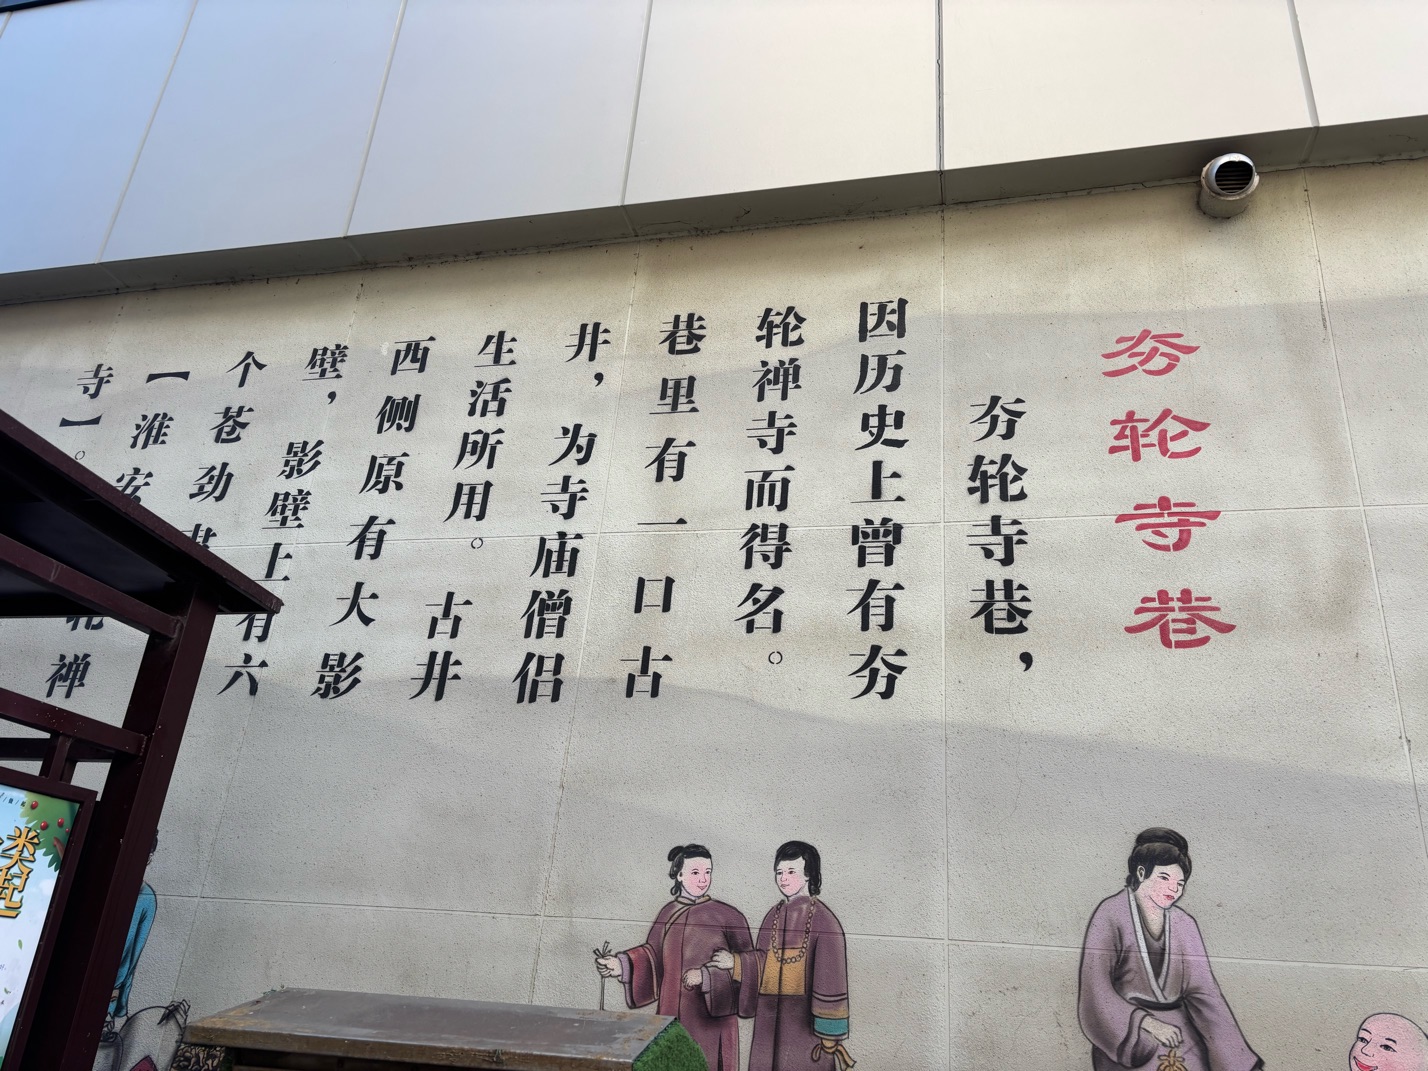 夯轮寺巷
夯轮寺巷，
因历史上曾有夯
轮禅寺而得名。
巷里有一口古
井，为寺庙僧侣
生活所用。古井
西侧原有大影
壁，影壁上有六
个苍劲
【淮安轮禅
寺】。
类